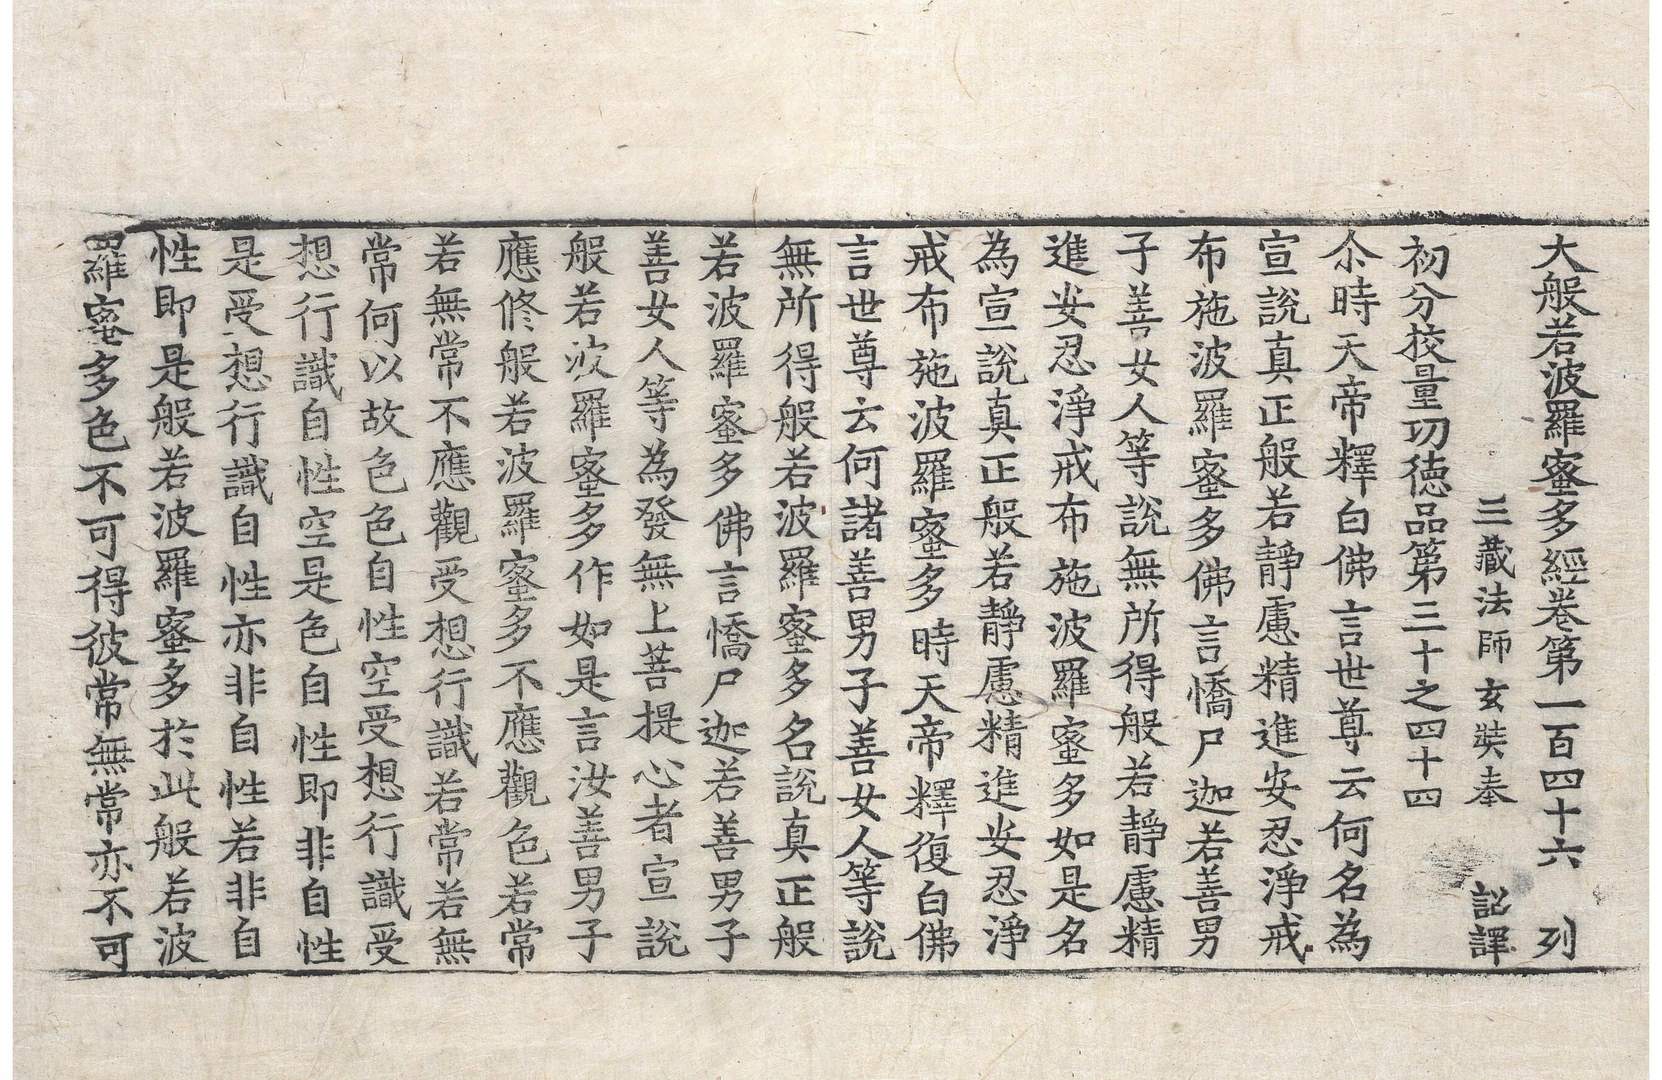 大般若波羅蜜多經卷第一百四十六　列
三藏法師玄奘奉　詔譯
初分校量功德品第三十之四十四
尒時天帝釋白佛言世尊云何名為
宣說真正般若靜慮精進安忍淨戒
布施波羅蜜多佛言憍尸迦若善男
子善女人等說無所得般若靜慮精
進安忍淨戒布施波羅蜜多如是名
為宣說真正般若靜慮精進安忍淨
戒布施波羅蜜多時天帝釋復白佛
言世尊云何諸善男子善女人等說
無所得般若波羅蜜多名說真正般
若波羅蜜多佛言憍尸迦若善男子
善女人等為發無上菩提心者宣說
般若波羅蜜多作如是言汝善男子
應修般若波羅蜜多不應觀色若常
若無常不應觀受想行識若常若無
常何以故色色自性空受想行識受
想行識自性空是色自性即非自性
是受想行識自性亦非自性若非自
性即是般若波羅蜜多於此般若波
羅蜜多色不可得彼常無常亦不可